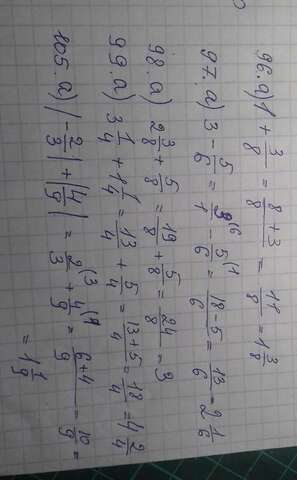 96. a) 1 + 3/8 = (8+3)/8 = 11/8 = 1 3/8
97. a) 3 - 5/6 = 3/1 ⁶ - 5/6 ⁽¹ = (18-5)/6 = 13/6 = 2 1/6
98. a) 2 3/8 + 5/8 = 19/8 + 5/8 = 24/8 = 3
99. a) 3 1/4 + 1 1/4 = 13/4 + 5/4 = (13+5)/4 = 18/4 = 4 2/4
105. a) |-2/3| + |4/9| = 2/3 ⁽³ + 4/9 ⁽¹ = (6+4)/9 = 10/9 =
= 1 1/9